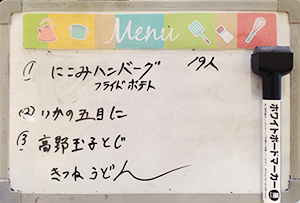 Menu
(1) にこみハンバーグ 19人
フライドポテト
(2) いかの五目に
(3) 高野玉子とじ
きつねうどん
ホワイトボードマーカー